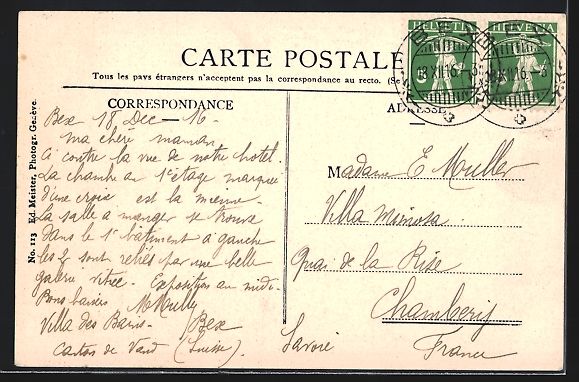 CARTE POSTALE
Tous les pays étrangers n'acceptent pas la correspondance au recto. (Se
CORRESPONDANCE
ADRESSE
HELVETIA
HELVETIA
5
BEX
18.XII.16.-8
BEX
18.XII.16.-8
No. 113 Ed. Meister, Photogr. Genève.
Bex 18 Dec — 16 -
ma chère maman
Ci contre la vue de notre hotel.
La chambre au 1r étage marquée
d'une croix est la mienne.
La salle a manger se trouve
dans le 1r bâtiment à gauche
les 2 sont reliés par une belle
galerie vitrée. Exposition au midi.
Bons baisers M Muller
Villa des Bains - Bex
Canton de Vaud (Suisse).
Madame E Muller
Villa Mimosa
Quai de la Rise
Chambery
Savoie
France